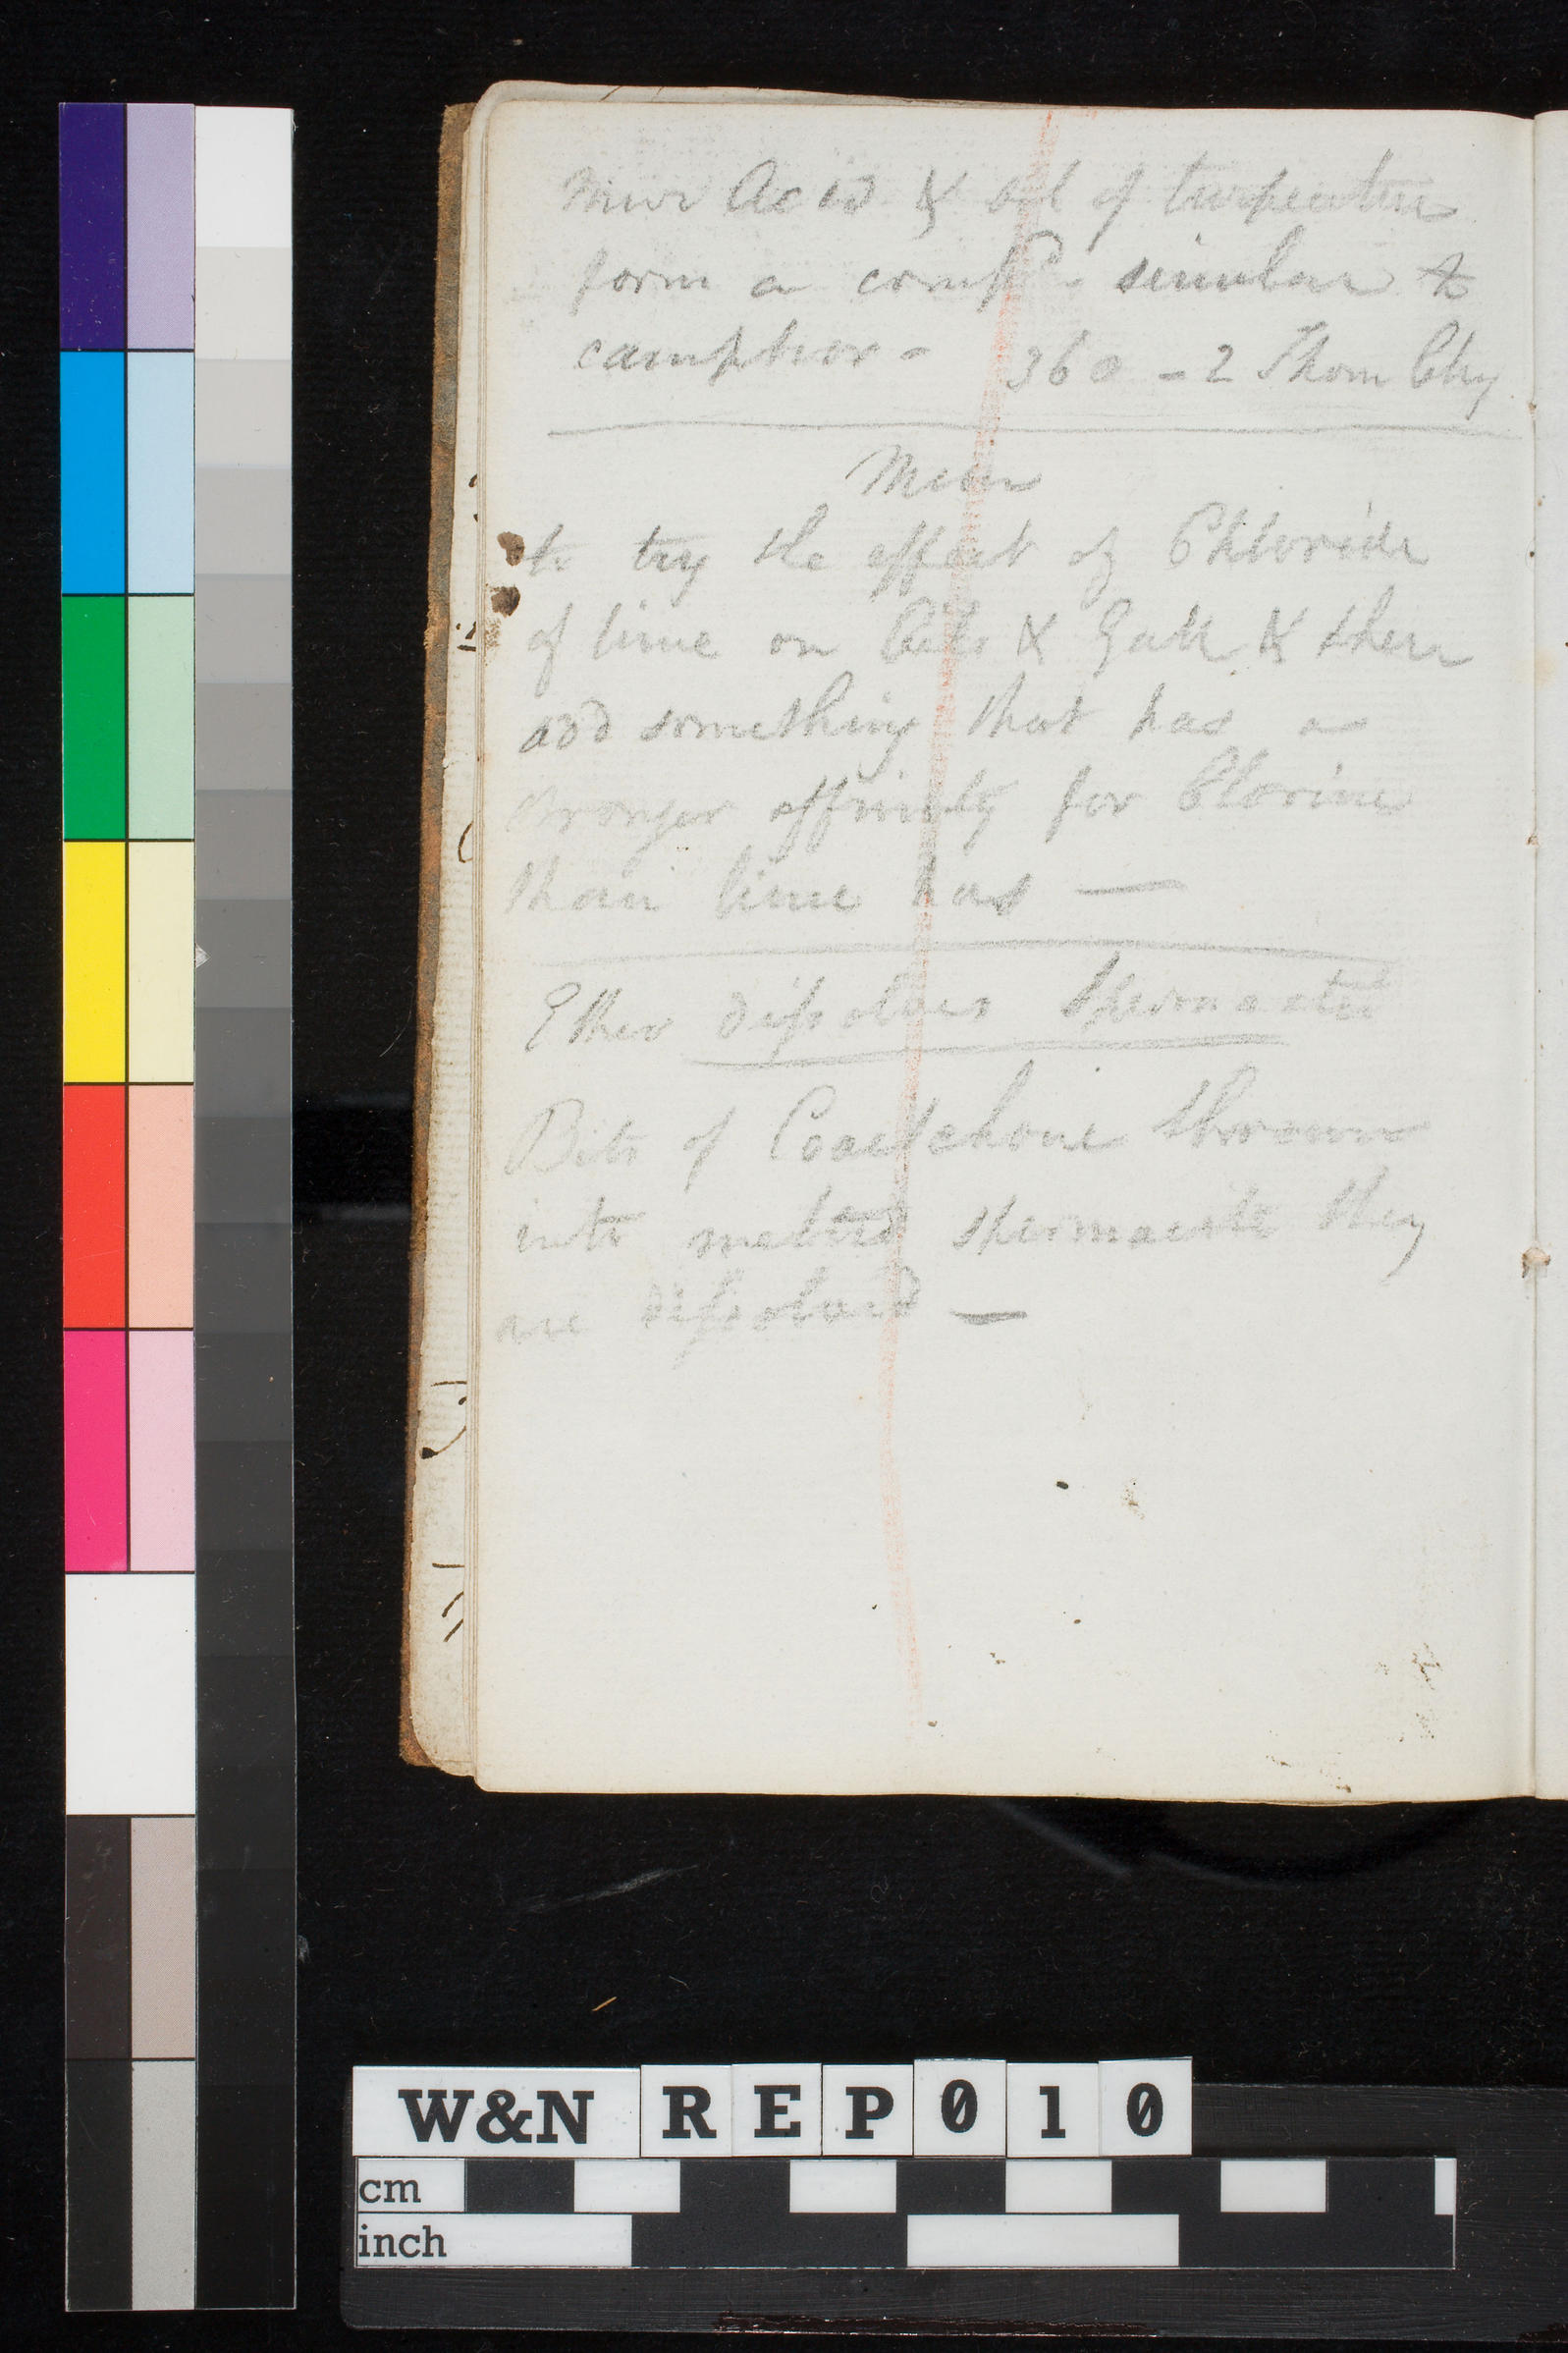 Mur Acid & oil of turpentine
form a compd. similar to
camphor - 360 - 2 Thom Chy
Mem
to try the effect of Chloride
of lime on Oils & Galls & then
add something that has a
stronger affinity for Clorine
than lime has —
Ether dissolves Spermaceti
Bits of Caoutchouc thrown
into melted spermaceti they
are dissolved —
W&N REP010
cm
inch